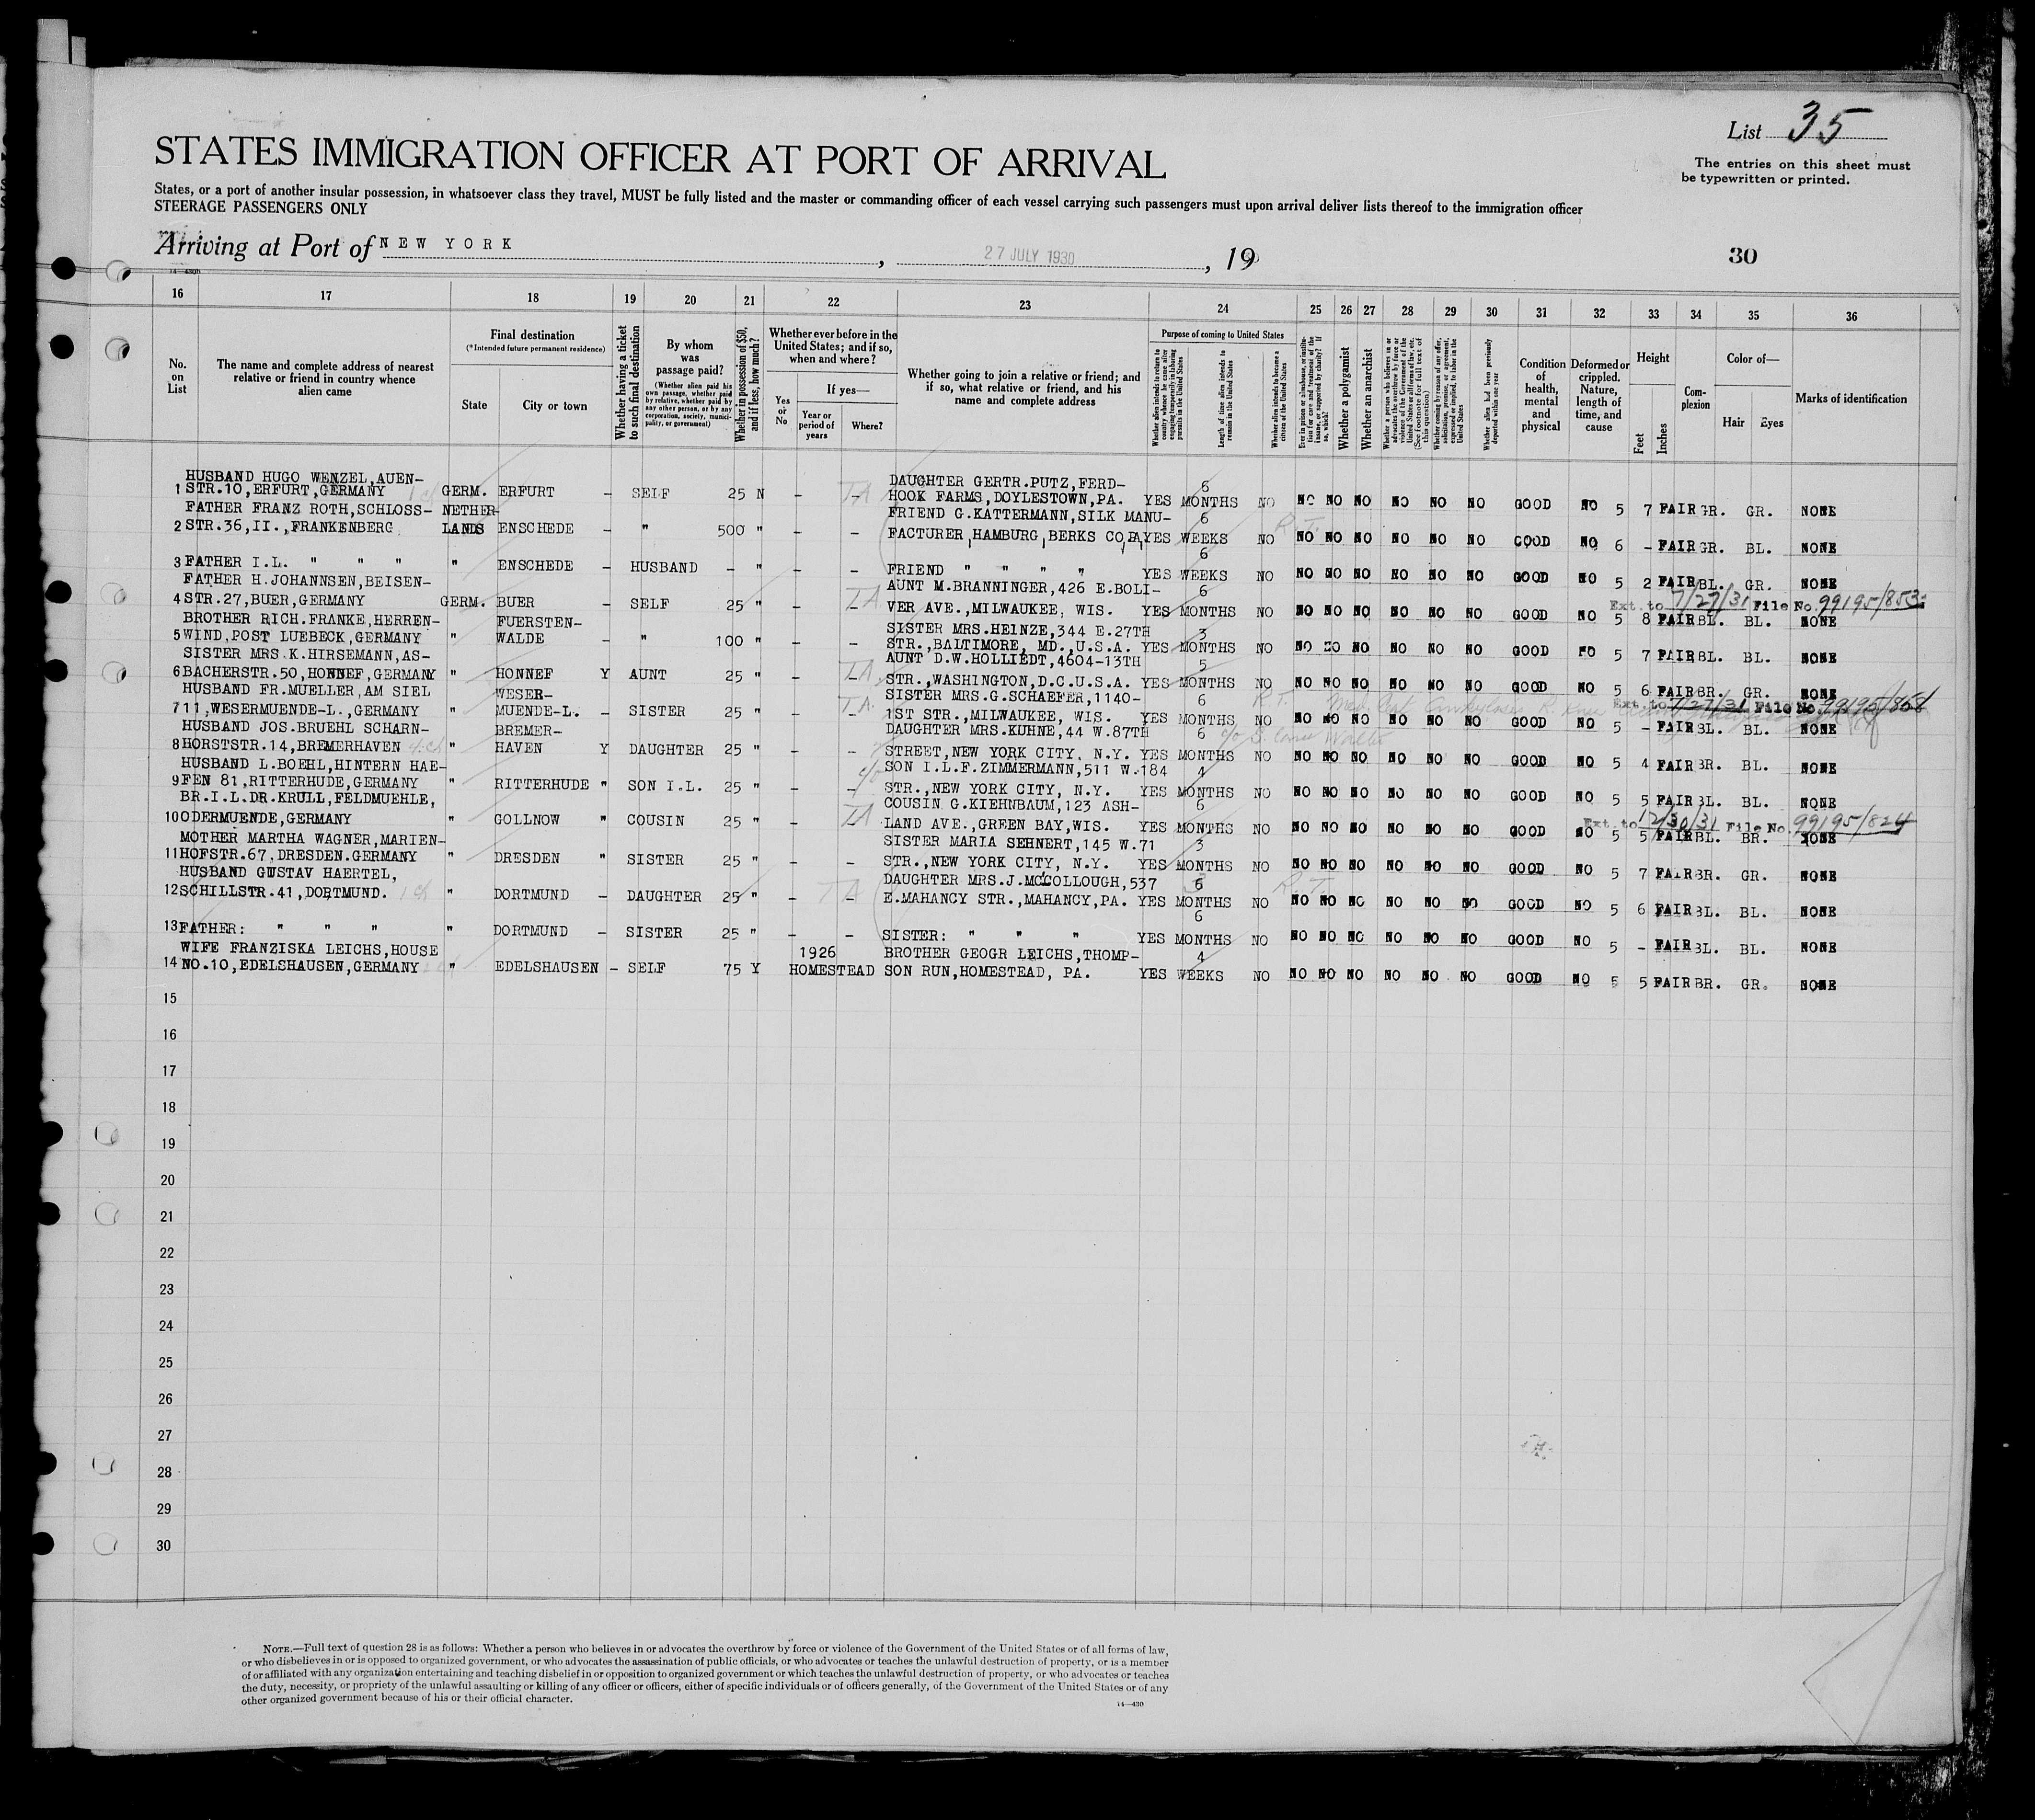 List 35
STATES IMMIGRATION OFFICER AT PORT OF ARRIVAL
The entries on this sheet must
be typewritten or printed.
States, or a port of another insular possession, in whatsoever class they travel, MUST be fully listed and the master or commanding officer of each vessel carrying such passengers must upon arrival deliver lists thereof to the immigration officer
STEERAGE PASSENGERS ONLY
Arriving at Port of NEW YORK, 27 JULY 1930, 19 30
16 17 18 19 20 21 22 23 24 25 26 27 28 29 30 31 32 33 34 35 36
No. on List
The name and complete address of nearest relative or friend in country whence alien came
Final destination
(*Intended future permanent residence)
State
City or town
Whether having a ticket to such final destination
By whom was passage paid?
(Whether alien paid his own passage, whether paid by relative, whether paid by any other person, or by any corporation, society, municipality, or government)
Whether in possession of $50, and if less, how much?
Whether ever before in the United States; and if so, when and where?
Yes or No
If yes—
Year or period of years
Where?
Whether going to join a relative or friend; and if so, what relative or friend, and his name and complete address
Purpose of coming to United States
Whether alien intends to return to country whence he came after engaging temporarily in laboring pursuits in the United States
Length of time alien intends to remain in the United States
Whether alien intends to become a citizen of the United States
Ever in prison or almshouse, or institution for care and treatment of the insane, or supported by charity? If so, which?
Whether a polygamist
Whether an anarchist
Whether a person who believes in or advocates the overthrow by force or violence of the Government of the United States or all forms of law, etc. (See footnote for full text of this question)
Whether coming by reason of any offer, solicitation, promise, or agreement, expressed or implied, to labor in the United States
Whether alien had been previously deported within one year
Condition of health, mental and physical
Deformed or crippled. Nature, length of time, and cause
Height
Feet
Inches
Complexion
Color of—
Hair
Eyes
Marks of identification
HUSBAND HUGO WENZEL,AUEN- DAUGHTER GERTR.PUTZ,FERD- 6
1 STR.10,ERFURT,GERMANY GERM. ERFURT - SELF 25 N - - HOOK FARMS,DOYLESTOWN,PA. YES MONTHS NO NO NO NO NO NO NO GOOD NO 5 7 FAIR GR. GR. NONE
FATHER FRANZ ROTH,SCHLOSS- NETHER- FRIEND G.KATTERMANN,SILK MANU- 6
2 STR.36,II.,FRANKENBERG LANDS ENSCHEDE - " 500 " - - FACTURER,HAMBURG,BERKS CO,PA, YES WEEKS NO NO NO NO NO NO NO GOOD NO 6 - FAIR GR. BL. NONE
6
3 FATHER I.L. " " " " ENSCHEDE - HUSBAND - " - - FRIEND " " " " YES WEEKS NO NO NO NO NO NO NO GOOD NO 5 2 FAIR BL. GR. NONE
FATHER H.JOHANNSEN,BEISEN- AUNT M.BRANNINGER,426 E.BOLI- 6
Ext. to 7/27/31 File No. 99195/853
4 STR.27,BUER,GERMANY GERM. BUER - SELF 25 " - - VER AVE.,MILWAUKEE, WIS. YES MONTHS NO NO NO NO NO NO NO GOOD NO 5 8 FAIR BL. BL. NONE
BROTHER RICH.FRANKE,HERREN- FUERSTEN- SISTER MRS.HEINZE,344 E.27TH 3
5 WIND,POST LUEBECK,GERMANY " WALDE - " 100 " - - STR.,BALTIMORE, MD.,U.S.A. YES MONTHS NO NO NO NO NO NO NO GOOD NO 5 7 FAIR BL. BL. NONE
SISTER MRS.K.HIRSEMANN,AS- AUNT D.W.HOLLIEDT,4604-13TH 5
6 BACHERSTR.50,HONNEF,GERMANY " HONNEF Y AUNT 25 " - - STR.,WASHINGTON,D.C.U.S.A. YES MONTHS NO NO NO NO NO NO NO GOOD NO 5 6 FAIR BR. GR. NONE
HUSBAND FR.MUELLER,AM SIEL WESER- SISTER MRS.G.SCHAEFER,1140- 6 R.T.
Ext. to 7/27/31 File No. 99195/858
7 11,WESERMUENDE-L.,GERMANY " MUENDE-L. - SISTER 25 " - - 1ST STR.,MILWAUKEE, WIS. YES MONTHS NO NO NO NO NO NO NO GOOD NO 5 - FAIR BL. BL. NONE
HUSBAND JOS.BRUEHL SCHARN- BREMER- DAUGHTER MRS.KUHNE,44 W.87TH 6
8 HORSTSTR.14,BREMERHAVEN " HAVEN Y DAUGHTER 25 " - - STREET,NEW YORK CITY, N.Y. YES MONTHS NO NO NO NO NO NO NO GOOD NO 5 4 FAIR BR. BL. NONE
HUSBAND L.BOEHL,HINTERN HAE- SON I.L.F.ZIMMERMANN,511 W.184 4
9 FEN 81,RITTERHUDE,GERMANY " RITTERHUDE " SON I.L. 25 " - - STR.,NEW YORK CITY, N.Y. YES MONTHS NO NO NO NO NO NO NO GOOD NO 5 5 FAIR BL. BL. NONE
BR.I.L.DR.KRULL,FELDMUEHLE, COUSIN G.KIEHNBAUM,123 ASH- 6
Ext. to 12/30/31 File No. 99195/824
10 ODERMUENDE,GERMANY " GOLLNOW " COUSIN 25 " - - LAND AVE.,GREEN BAY,WIS. YES MONTHS NO NO NO NO NO NO NO GOOD NO 5 5 FAIR BL. BR. NONE
MOTHER MARTHA WAGNER,MARIEN- SISTER MARIA SEHNERT,145 W.71 3
11 HOFSTR.67,DRESDEN.GERMANY " DRESDEN " SISTER 25 " - - STR.,NEW YORK CITY, N.Y. YES MONTHS NO NO NO NO NO NO NO GOOD NO 5 7 FAIR BR. GR. NONE
HUSBAND GUSTAV HAERTEL, DAUGHTER MRS.J.MCCOLLOUGH,537 6 R.T.
12 SCHILLSTR.41,DORTMUND. " DORTMUND - DAUGHTER 25 " - - E.MAHANCY STR.,MAHANCY,PA. YES MONTHS NO NO NO NO NO NO NO GOOD NO 5 6 FAIR BL. BL. NONE
6
13 FATHER: " " " " DORTMUND - SISTER 25 " - - SISTER: " " " YES MONTHS NO NO NO NO NO NO NO GOOD NO 5 - FAIR BL. BL. NONE
WIFE FRANZISKA LEICHS,HOUSE 1926 BROTHER GEOGR LEICHS,THOMP- 4
14 NO.10,EDELSHAUSEN,GERMANY " EDELSHAUSEN - SELF 75 Y HOMESTEAD SON RUN,HOMESTEAD, PA. YES WEEKS NO NO NO NO NO NO NO GOOD NO 5 5 FAIR BR. GR. NONE
15
16
17
18
19
20
21
22
23
24
25
26
27
28
29
30
NOTE.—Full text of question 28 is as follows: Whether a person who believes in or advocates the overthrow by force or violence of the Government of the United States or of all forms of law,
or who disbelieves in or is opposed to organized government, or who advocates the assassination of public officials, or who advocates or teaches the unlawful destruction of property, or is a member
of or affiliated with any organization entertaining and teaching disbelief in or opposition to organized government or which teaches the unlawful destruction of property, or who advocates or teaches
the duty, necessity, or propriety of the unlawful assaulting or killing of any officer or officers, either of specific individuals or of officers generally, of the Government of the United States or of any
other organized government because of his or their official character.
14—430